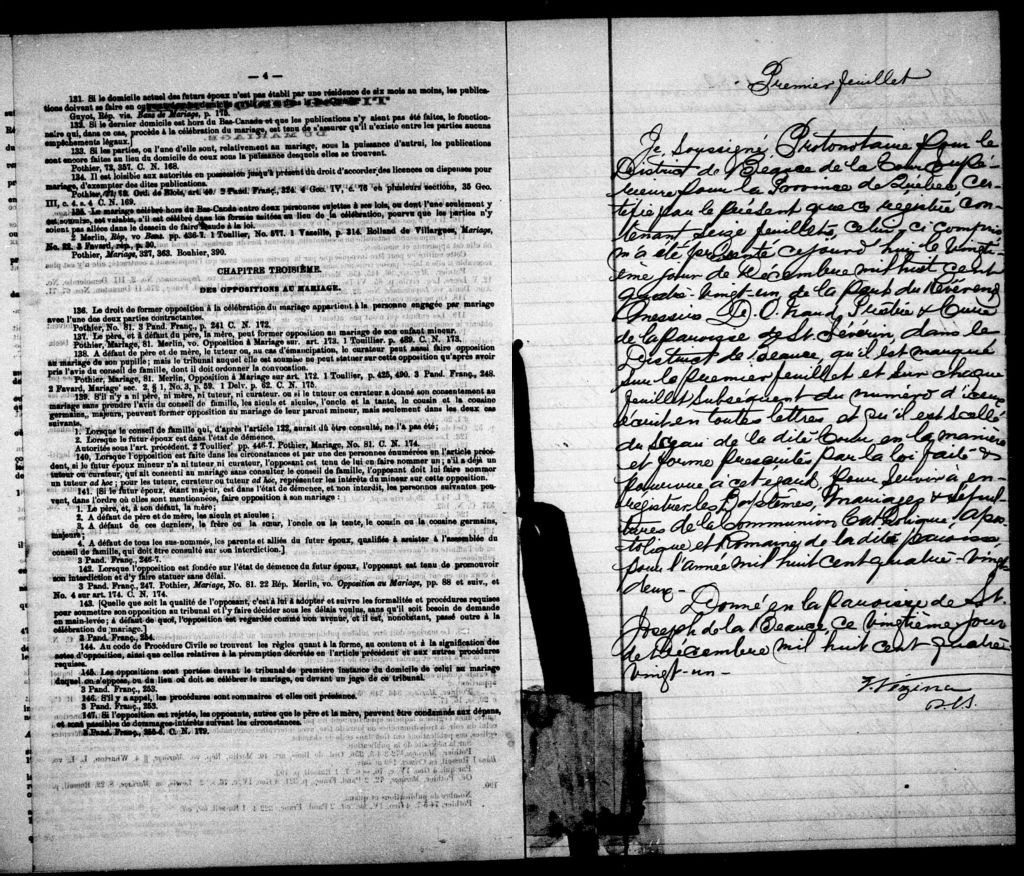 — 4 —
131. Si le domicile actuel des futurs époux n'est pas établi par une résidence de six mois au moins, les publica-
tions doivent se faire en
Guyot, Rép. vis. Bans de Mariage, p. 175.
132. Si le dernier domicile est hors du Bas-Canada et que les publications n'y aient pas été faites, le fonction-
naire qui, dans ce cas, procède à la célébration du mariage, est tenu de s'assurer qu'il n'existe entre les parties aucuns
empêchements légaux.]
133. Si les parties, ou l'une d'elles, sont, relativement au mariage, sous la puissance d'autrui, les publications
sont encore faites au lieu du domicile de ceux sous la puissance desquels elles se trouvent.
Pothier, 72, 357. C. N. 168.
134. Il est loisible aux autorités en possession jusqu'à présent du droit d'accorder des licences ou dispenses pour
mariage, d'exempter des dites publications.
Pothier, 77, 78. Ord. de Blois, art. 40. 3 Pand. Franç., 324. 4 Geo. IV, c. 78 en plusieurs sections, 35 Geo.
III, c. 4. s. 4 C. N. 169.
135. Le mariage célébré hors du Bas-Canada entre deux personnes sujettes à ses lois, ou dont l'une seulement y
est soumise, est valable, s'il est célébré dans les formes usitées au lieu de la célébration, pourvu que les parties n'y
soient pas allées dans le dessein de faire fraude à la loi.
2 Merlin, Rép, vo Bans. pp. 436-7. 1 Toullier, No. 577. 1 Vazeille, p. 314. Rolland de Villargues, Mariage,
No. 22. 3 Favard, rép. p. 30.
Pothier, Mariage, 327, 363. Bouhier, 390.
CHAPITRE TROISIÈME.
DES OPPOSITIONS AU MARIAGE.
136. Le droit de former opposition à la célébration du mariage appartient à la personne engagée par mariage
avec l'une des deux parties contractantes.
Pothier, No. 81. 3 Pand. Franç., p. 241 C. N. 172.
137. Le père, et à défaut du père, la mère, peut former opposition au mariage de son enfant mineur.
Pothier, Mariage, 81. Merlin, vo. Opposition à Mariage sur art. 173. 1 Touillier. p. 489. C. N. 173.
138. A défaut de père et de mère, le tuteur ou, au cas d'émancipation, le curateur peut aussi faire opposition
au mariage de son pupille ; mais le tribunal auquel elle est soumise ne peut statuer sur cette opposition qu'après avoir
pris l'avis du conseil de famille, dont il doit ordonner la convocation.
Pothier, Mariage, 81. Merlin, Opposition à Mariage sur art. 172. 1 Toullier, p. 425, 490. 3 Pand. Franç., 248.
2 Favard, Mariage sec. 2, § 1, No. 3, p. 59. 1 Delv. p. 62. C. N. 175.
139. S'il n'y a ni père, ni mère, ni tuteur, ni curateur, ou si le tuteur ou curateur a donné son consentement au
mariage sans prendre l'avis du conseil de famille, les aïeuls et aïeules, l'oncle et la tante, le cousin et la cousine
germaines, majeurs, peuvent former opposition au mariage de leur parent mineur, mais seulement dans les deux cas
suivants.
1. Lorsque le conseil de famille qui, d'après l'article 122, aurait dû être consulté, ne l'a pas été ;
2. Lorsque le futur époux est dans l'état de démence.
Autorités sous l'art. précédent. 2 Toullier pp. 446-7. Pothier, Mariage, No. 81. C. N. 174.
140. Lorsque l'opposition est faite dans les circonstances et par une des personnes énumérées en l'article précé-
dent, si le futur époux mineur n'a ni tuteur ni curateur, l'opposant est tenu de lui en faire nommer un ; s'il a déjà un
tuteur ou curateur, qui ait consenti au mariage sans consulter le conseil de famille, l'opposant doit lui faire nommer
un tuteur ad hoc ; pour les tuteur, curateur ou tuteur ad hoc, représenter les intérêts du mineur sur cette opposition.
141. [Si le futur époux, étant majeur, est dans l'état de démence, et non interdit, les personnes suivantes peu-
vent, dans l'ordre où elles sont mentionnées, faire opposition à son mariage :
1. Le père, et, à son défaut, la mère ;
2. A défaut de père et de mère, les aïeuls et aïeules ;
3. A défaut de ces derniers, le frère ou la sœur, l'oncle ou la tante, le cousin ou la cousine germains,
majeurs ;
4. A défaut de tous les sus-nommés, les parents et alliés du futur époux, qualifiés à assister à l'assemblée du
conseil de famille, qui doit être consulté sur son interdiction.]
3 Pand. Franç., 246-7.
142. Lorsque l'opposition est fondée sur l'état de démence du futur époux, l'opposant est tenu de promouvoir
son interdiction et d'y faire statuer sans délai.
3 Pand. Franç., 247. Pothier, Mariage, No. 81. 22 Rép. Merlin, vo. Opposition au Mariage, pp. 88 et suiv., et
No. 4 sur art. 174. C. N. 174.
143. [Quelle que soit la qualité de l'opposant, c'est à lui à adopter et suivre les formalités et procédures requises
pour soumettre son opposition au tribunal et l'y faire décider sous les délais voulus, sans qu'il soit besoin de demande
en main-levée ; à défaut de quoi, l'opposition est regardée comme non avenue, et il est, nonobstant, passé outre à la
célébration du mariage.]
3 Pand. Franç., 254.
144. Au code de Procédure Civile se trouvent les règles quant à la forme, au contenu et à la signification des
actes d'opposition, ainsi que celles relatives à la péremption décrétée en l'article précédent et aux autres procédures
requises.
145. Les oppositions sont portées devant le tribunal de première instance du domicile de celui au mariage
duquel on s'oppose, ou du lieu où doit se célébrer le mariage, ou devant un juge de ce tribunal.
3 Pand. Franç., 253.
146. S'il y a appel, les procédures sont sommaires et elles ont préséance.
3 Pand. Franç., 253.
147. Si l'opposition est rejetée, les opposants, autres que le père et la mère, peuvent être condamnés aux dépens,
et sont passibles de dommages-intérêts suivant les circonstances.
3 Pand. Franç., 255-6. C. N. 179.
Premier feuillet
Je, Soussigné Protonotaire pour le
District de Beauce de la Cour Supé-
rieure pour la Province de Québec cer-
tifie par le présent que ce registre con-
tenant seize feuillets, celui-ci compris
m'a été présenté ce jourd'hui le vingti-
ème jour de décembre mil huit cent
quatre-vingt-un de la part du Révérend
Messire D. O. Naud, Prêtre & Curé
de la paroisse de St. Séverin, dans le
District de Beauce, qu'il est marqué
sur le premier feuillet et sur chaque
feuillet subséquent du numéro d'iceux
écrit en toutes lettres et qu'il est scellé
du sceau de la dite Cour, en la manière
et forme prescrites par la loi faite &
pourvue à cet égard, pour servir à en-
registrer les Baptêmes, Mariages & Sépul-
tures de la Communion Catholique, Apos-
tolique et Romaine de la dite paroisse
pour l'année mil huit cent quatre-vingt-
deux-
Donné en la paroisse de St.
Joseph de la Beauce, ce vingtième jour
de décembre mil huit cent quatre
vingt-un-
Vézina
P.C.S.